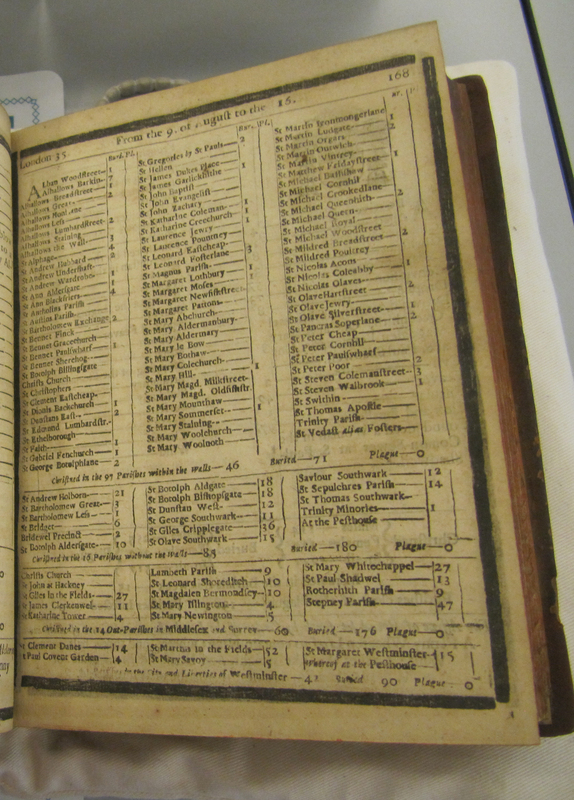 168
London 35 From the 9. of August to the 16.
Bur. Pl.
Alban Woodstreet— 1
Alhallows Barkin— 7
Alhallows Breadstreet— 1
Alhallows Great—
Alhallows Honilane
Alhallows Less—
Alhallows Lumbardstreet— 2
Alhallows Staining—
Alhallows the Wall— 3
St Alphage— 4
St Andrew Hubbard— 2
St Andrew Undershaft—
St Andrew Wardrobe— 1
St Ann Aldersgate— 1
St Ann Blackfriers— 4
St Antholins Parish
St Austins Parish—
St Bartholomew Exchange 2
St Bennet Finck—
St Bennet Gracechurch
St Bennet Paulswharf— 1
St Bennet Sherehog—
St Botolph Billingsgate
Christs Church—
St Christophers—
St Clement Eastcheap—
St Dionis Backchurch— 1
St Dunstans East— 2
St Edmond Lumbardstr.
St Ethelborough—
St Faith— 1
St Gabriel Fenchurch— 1
St George Botolphlane— 2
Bur. Pl.
St Gregories by St Pauls— 2
St Hellen—
St James Dukes Place— 1
St James Garlickhithe
St John Baptist—
St John Evangelist
St John Zachary—
St Katharine Coleman— 1
St Katharine Creechurch— 1
St Laurence Jewry—
St Laurence Pountney
St Leonard Eastcheap—
St Leonard Fosterlane 3
St Magnus Parish— 1
St Margaret Lothbury 1
St Margaret Moses
St Margaret Newfishstreet—
St Margaret Pattons—
St Mary Abchurch—
St Mary Aldermanbury—
St Mary Aldermary
St Mary le Bow
St Mary Bothaw—
St Mary Colechurch—
St Mary Hill— 1
St Mary Magd. Milkstreet—
St Mary Magd. Oldfishstr.
St Mary Mounthaw
St Mary Sommerset— 1
St Mary Staining—
St Mary Woolchurch—
St Mary Woolnoth
Bur.
St Martin Ironmongerlane 1
St Martin Ludgate— 2
St Martin Orgars
St Martin Outwich
St Martin Vintrey— 1
St Matthew Fridaystreet
St Michael Bassishaw
St Michael Cornhil
St Michael Crookedlane
St Michael Queenhith— 2
St Michael Queen—
St Michael Royal
St Michael Woodstreet
St Mildred Breadstreet 2
St Mildred Poultrey
St Nicolas Acons
St Nicolas Coleabby 1
St Nicolas Olaves
St Olave Hartstreet 2
St Olave Jewry—
St Olave Silverstreet— 1
St Pancras Soperlane— 2
St Peter Cheap
St Peter Cornhil—
St Peter Paulswharf
St Peter Poor— 2
St Steven Colemanstreet— 3
St Steven Walbrook 1
St Swithin
St Thomas Apostle
Trinity Parish—
St Vedast alias Fosters—
Christned in the 97 Parishes within the Walls— 46 Buried— 71 Plague— 0
St Andrew Holborn— 21
St Bartholomew Great— 3
St Bartholomew Less— 1
St Bridget— 6
Bridewel Precinct— 2
St Botolph Aldersgate— 10
St Botolph Aldgate— 18
St Botolph Bishopsgate 18
St Dunstan West— 12
St George Southwark— 11
St Giles Cripplegate— 36
St Olave Southwark— 15
Saviour Southwark— 12
St Sepulchres Parish— 14
St Thomas Southwark—
Trinity Minories— 1
At the Pesthouse
Christned in the 16 Parishes without the Walls— 83 Buried— 180 Plague— 0
Christs Church—
St John at Hackney
St Giles in the Fields— 27
St James Clerkenwel— 11
St Katharine Tower— 4
Lambeth Parish— 9
St Leonard Shoreditch— 10
St Magdalen Bermondsey— 10
St Mary Islington— 4
St Mary Newington— 5
St Mary Whitechappel— 27
St Paul Shadwel— 13
Rotherhith Parish— 9
Stepney Parish— 47
Christned in the 14 Out-Parishes in Middlesex and Surrey— 60 Buried— 176 Plague— 0
St Clement Danes— 14
St Paul Covent Garden— 4
St Martins in the Fields— 52
St Mary Savoy— 5
St Margaret Westminster— 15
whereof at the Pesthouse—
Parishes in the City and Liberties of Westminster— 41 Buried 90 Plague— 0